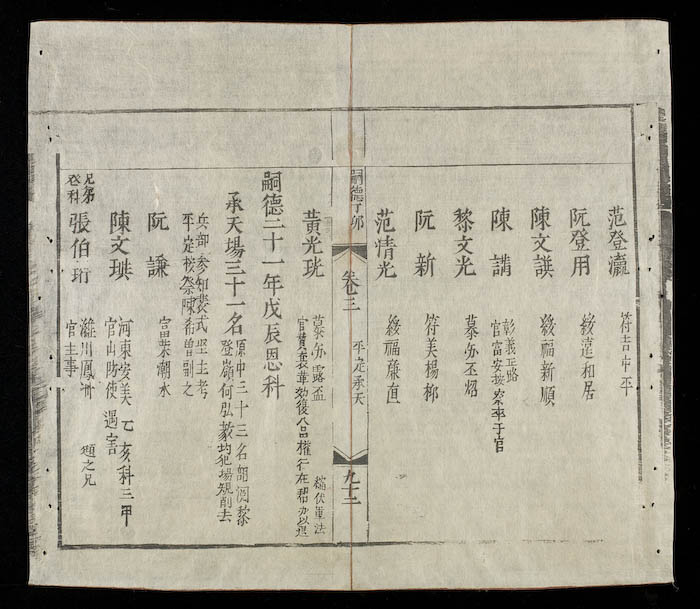 范登瀛 符吉中平
阮登用 綏遠和居
陳文譔 綏福新順
陳講 彰義正路
官富安按察卒于官
黎文光 慕弥丕焰
阮新 符美楊柳
范情光 綏福藤直
嗣德丁卯 卷三 平定承天 九十二
黃光珖 慕弥露盃
官贊襄
嗣德二十一年戊辰恩科
承天場三十一名 原中三十三名
登嶺何弘毅均犯場規削去
兵部參知裴式堅主考
平定按察陳希曾副之
阮謙 富榮潮水
陳文璵 河東安美 乙亥科三甲
官山防使遇害
兄弟
登科
張伯珩 濰川鳳
官主事
題之兄